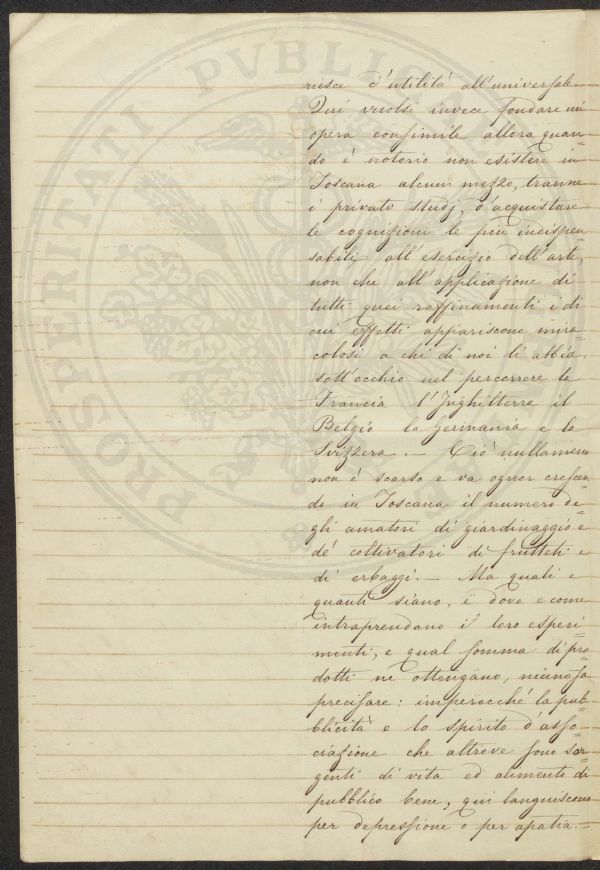 PROSPERITATI PVBLICAE
riesce d'utilità all'universale.
Qui vuolsi invece fondare un
opera consimile allora quan-
do è notorio non esistere in
Toscana alcun mezzo, tranne
i privati studj, d'acquistare
le cognizioni le più indispen-
sabili all'esercizio dell'arte,
non che all'applicazione di
tutti quei raffinamenti i di
cui effetti appariscono mira-
colosi a chi di noi li abbia
sott'occhio nel percorrere la
Francia l'Inghilterra il
Belgio la Germania e la
Svizzera. — Ciò nullameno
non è scarso e va ognor crescen-
do in Toscana il numero de-
gli amatori di giardinaggio e
de' coltivatori di frutteti e
di erbaggi. — Ma quali e
quanti siano, e dove e come
intraprendano i loro esperi-
menti, e qual somma di pro
dotti ne ottengano, niuno sa
precisare: imperocché la pub-
blicità e lo spirito d'asso-
ciazione che altrove sono sor-
genti di vita ed alimento di
pubblico bene, qui languiscono
per depressione o per apatia. =